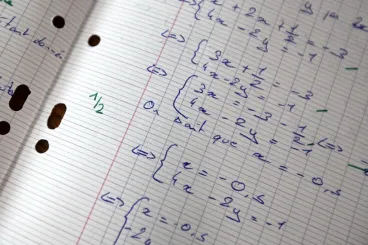 x + 2x + 1/2 = -3
4x - 2y = -1
<=> { 3x + 1/2 = -3
4x - 2y = -1
<=> { 3x = -3 - 1/2 <=>
4x - 2y = -1
1/2
On sait que x = -0,5
<=> { x = -0,5
4x - 2y = -1
<=> { x = -0,5
-2y